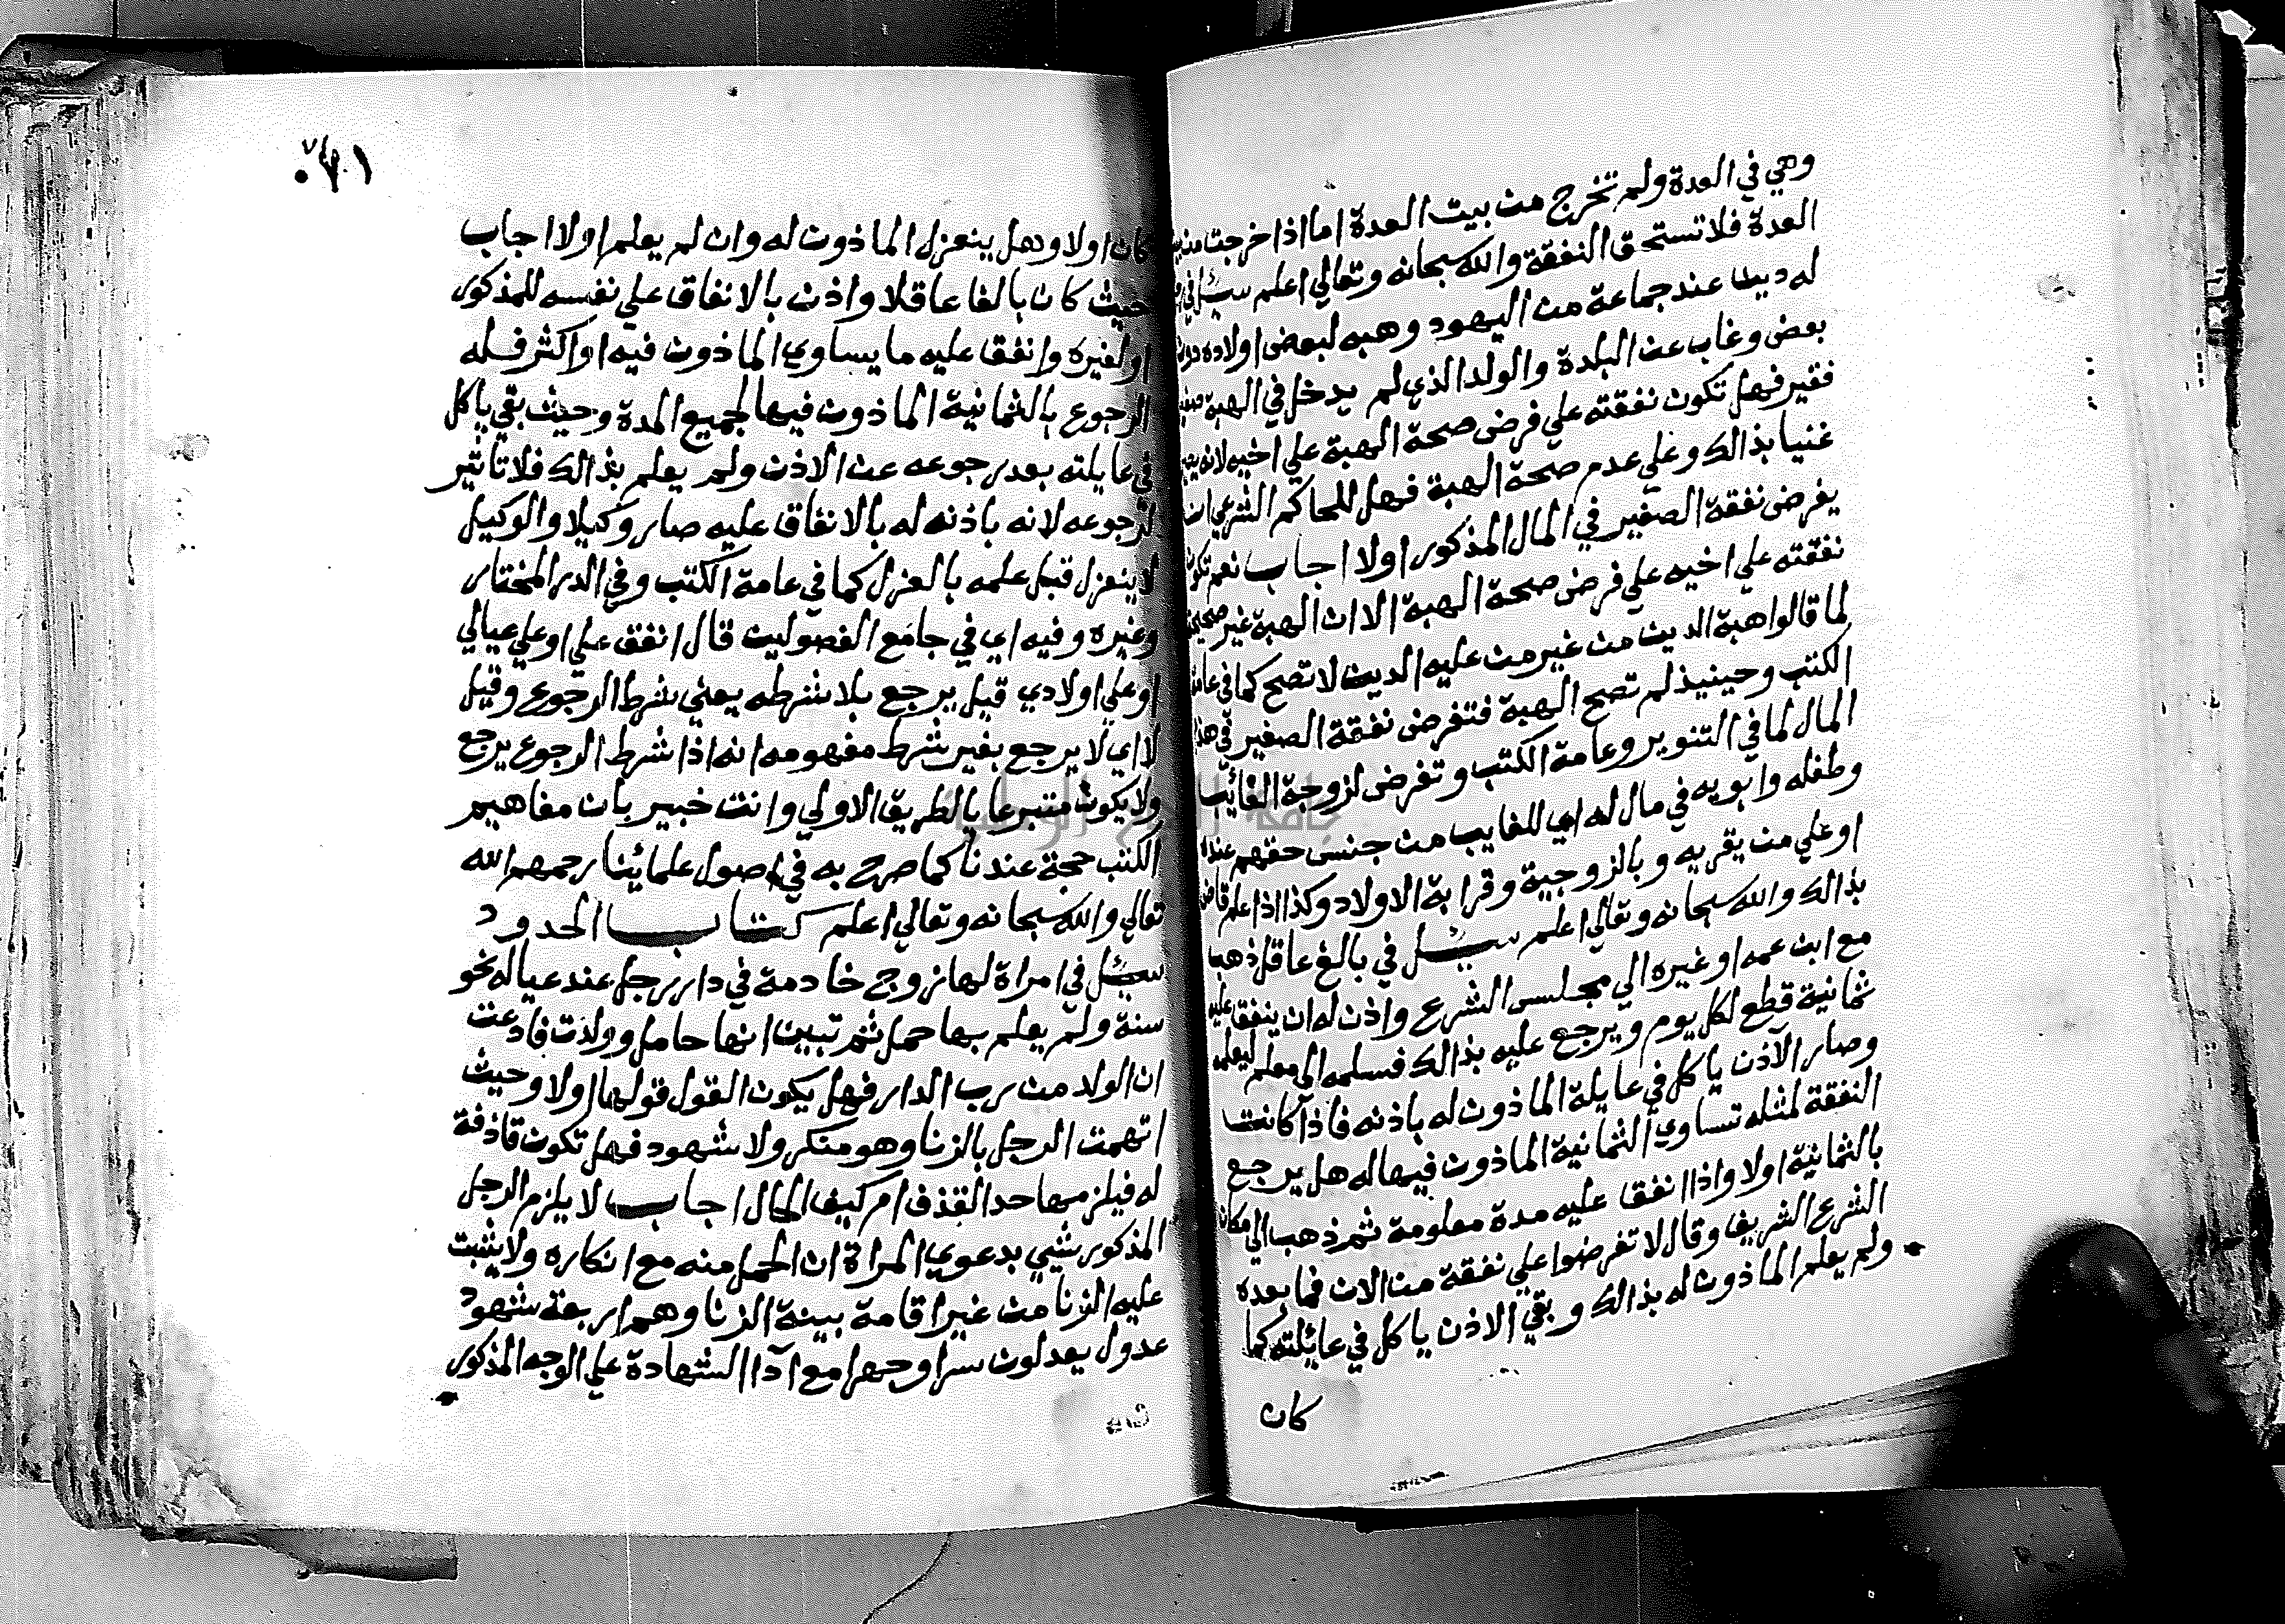 وهي في العدة ولم تخرج من بيت العدة اما اذا خرجت من
العدة فلا تستحق النفقة والله سبحانه وتعالي اعلم سئل في
له دين عند جماعة من اليهود وهبه لبعض اولاده دون
بعض وغاب عن البلدة والولد الذي لم يدخل في الهبة صغير
فقير فهل تكون نفقته علي فرض صحة الهبة علي اخيه لانه
غنيا بذالك وعلي عدم صحة الهبة فهل للحاكم الشرعي ان
يفرض نفقة الصغير في المال المذكور اولا اجاب نعم تكون
نفقته علي اخيه علي فرض صحة الهبة الا ان الهبة غير صحيحة
لما قالوا هبة الدين من غير من عليه الدين لا تصح كما في عامة
الكتب وحينيذ لم تصح الهبة فتفرض نفقة الصغير في هذا
المال لما في التنوير وعامة الكتب وتفرض لزوجة الغائب
وطفله وابويه في مال له اي للغايب من جنس حقهم عند
او علي من يقر به وبالزوجية وقرابة الاولاد وكذا اذا علم قاض
بذالك والله سبحانه وتعالي اعلم سئل في بالغ عاقل ذهب
مع ابن عمه او غيره الي مجلس الشرع واذن له ان ينفق عليه
ثمانية قطع لكل يوم ويرجع عليه بذالك فسلمه الي معلم ليعلمه
وصار الآذن ياكل في عايلة الماذون له باذنه فاذا كانت
النفقة لمثله تساوي الثمانية الماذون فيها له هل يرجع
بالثمانية اولا واذا انفق عليه مدة معلومة ثم ذهب الي مكان
الشرع الشريف وقال لا تفرضوا علي نفقة من الان فما بعده
ولم يعلم الماذون له بذالك وبقي الاذن ياكل في عائلته كما
كان
١٠٧
كان اولا وهل ينعزل الماذون له وان لم يعلم اولا اجاب
حيث كان بالغا عاقلا واذن بالانفاق علي نفسه للمذكور
او لغيره وانفق عليه ما يساوي الماذون فيه او اكثر فله
الرجوع بالثمانية الماذون فيها لجميع المدة وحيث بقي ياكل
في عايلته بعد رجوعه عن الاذن ولم يعلم بذالك فلا تاثير
لرجوعه لانه باذنه له بالانفاق عليه صار وكيلا والوكيل
لا ينعزل قبل علمه بالعزل كما في عامة الكتب وفي الدر المختار
وغيره وفيه اي في جامع الفصولين قال انفق علي او علي عيالي
او علي اولادي قيل يرجع بلا شرطه يعني شرط الرجوع وقيل
لا اي لا يرجع بغير شرط مفهومه انه اذا شرط الرجوع يرجع
ولا يكون متبرعا بالطريق الاولي وانت خبير بان مفاهيم
الكتب حجة عندنا كما صرح به في اصول علمائنا رحمهم الله
تعالي والله سبحانه وتعالي اعلم كتاب الحدود
سئل في امراة لها زوج خادمة في دار رجل عند عياله نحو
سنة ولم يعلم بها حمل ثم تبين انها حامل وولدت فادعت
ان الولد من رب الدار فهل يكون القول قولها اولا وحيث
اتهمت الرجل بالزنا وهو منكر ولا شهود فهل تكون قاذفة
له فيلزمها حد القذف ام كيف الحال اجاب لا يلزم الرجل
المذكور شيي بدعوي المراة ان الحمل منه مع انكاره ولا يثبت
عليه الزنا من غير اقامة بينة الزنا وهم اربعة شهود
عدول يعدلون سرا وجهرا مع آدا الشهادة علي الوجه المذكور